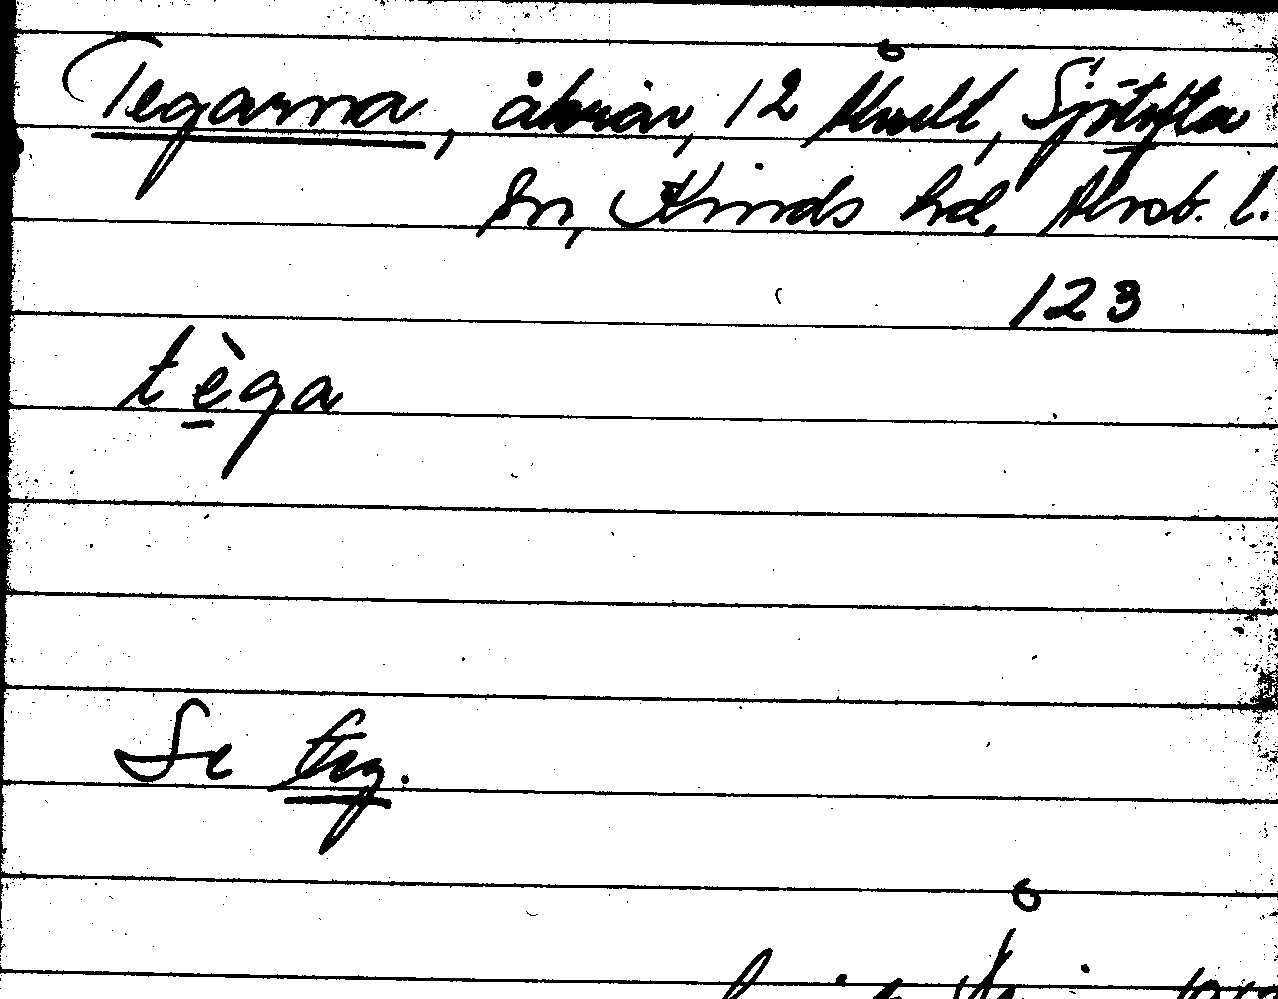 Tegarna, åkrar, 12 Ålhult, Sjötofta
sn, Kinds hd, Älvsb. l.
123
tèga
Se teg.